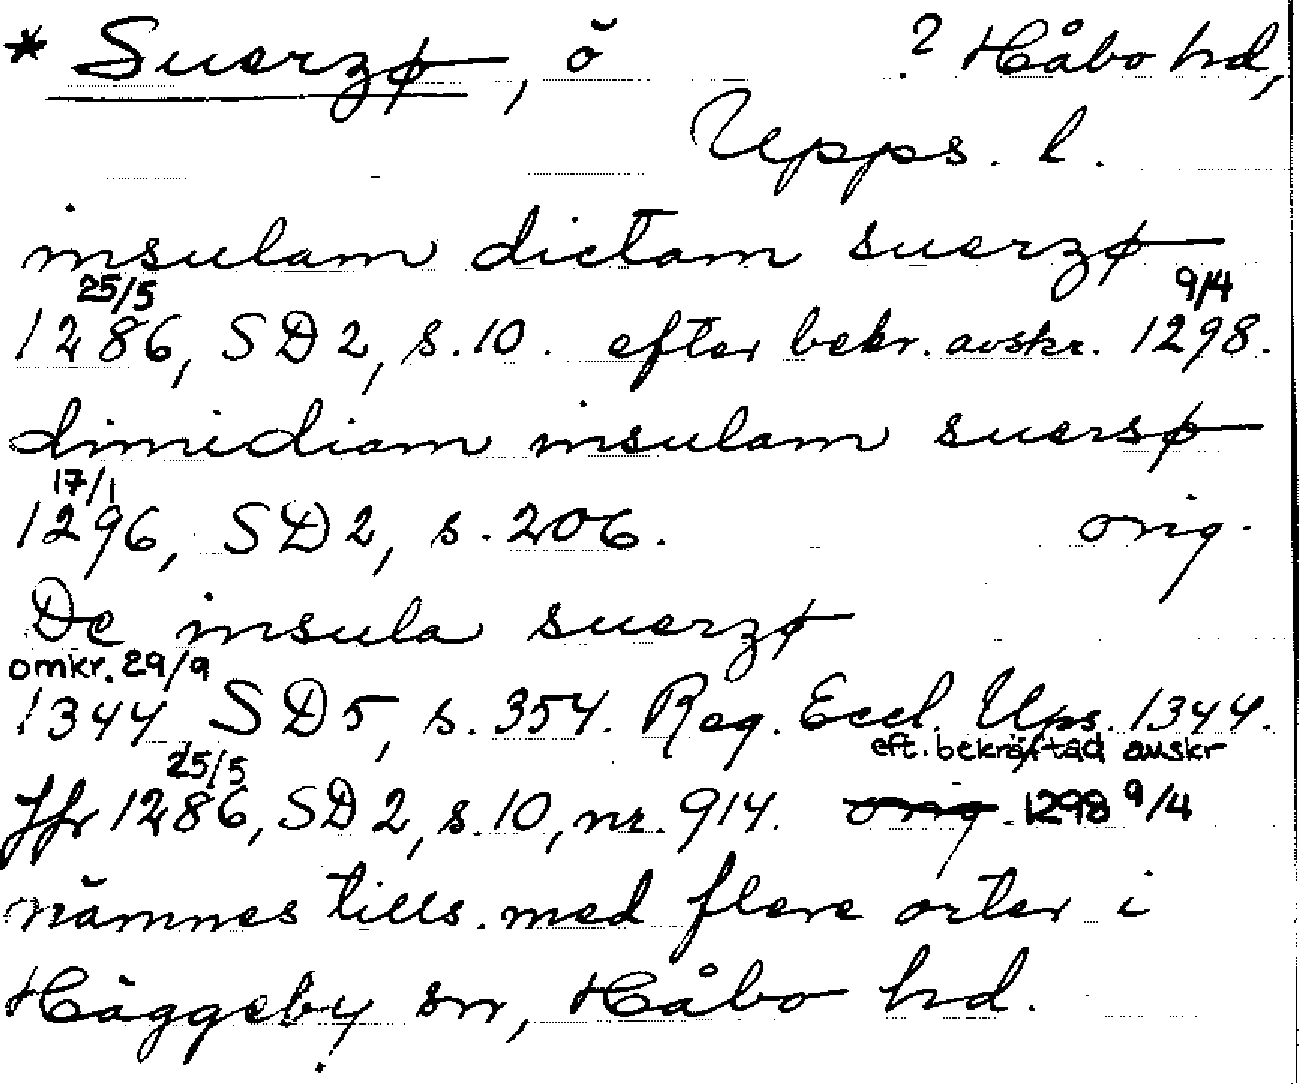 * Suerzø, ö ? Håbo hd,
Upps. l.
insulam dictam suerzø
25/5 9/4
1286, SD 2, s. 10. efter bekr. avskr. 1298.
dimidiam insulam suersø
17/1
1296, SD 2, s. 206. orig.
De insula suerzø
omkr. 29/9
1344 SD 5, s. 354. Reg. Eccl. Ups. 1344.
25/5 eft. bekräftad avskr
Jfr 1286, SD 2, s. 10, nr. 914. orig. 1298 9/4
nämnes tills. med flere orter i
Häggeby sn, Håbo hd.